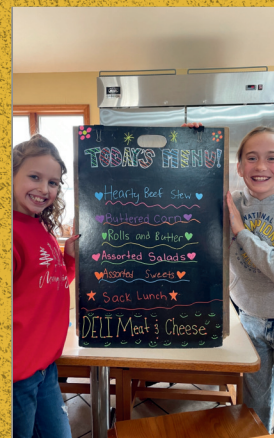 TODAY'S MENU!
Hearty Beef Stew
Buttered Corn
Rolls and Butter
Assorted Salads
Assorted Sweets
Sack Lunch
DELI Meat & Cheese